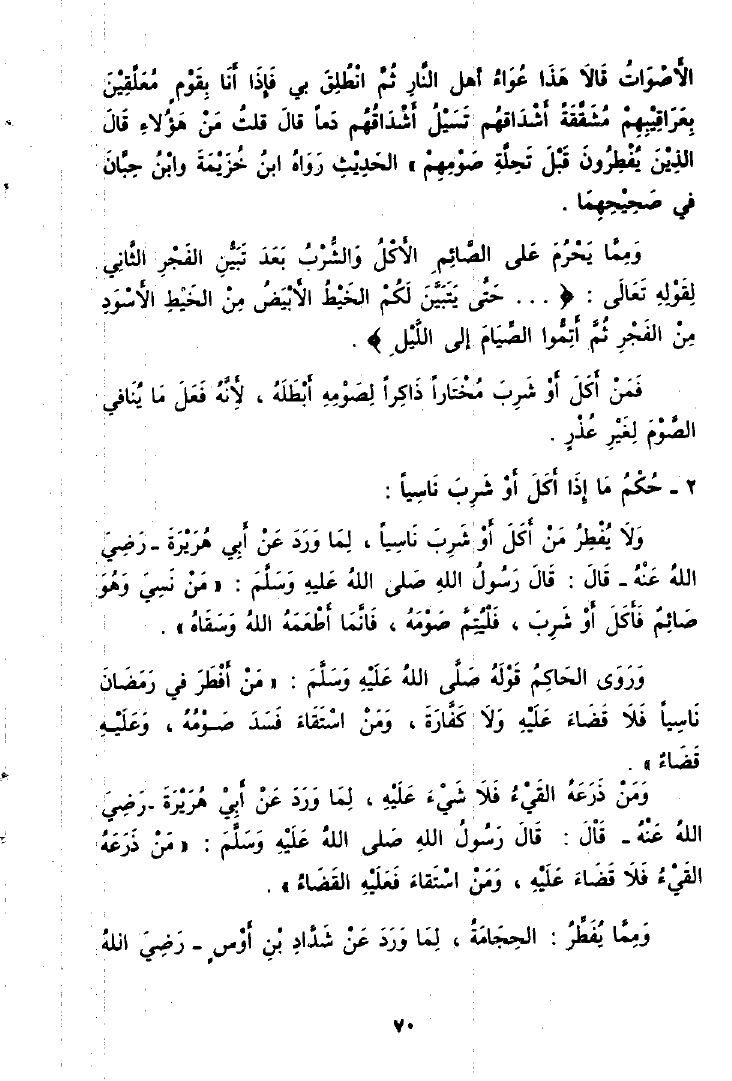 الأَصْوَاتُ قَالَا هَذَا عُوَاءُ أهل النَّارِ ثُمَّ انْطُلِقَ بي فَإِذَا أَنَا بِقَوْمٍ مُعَلَّقِيْنَ
بِعَرَاقِيْبِهِمْ مُشَقَّقَةً أَشْدَاقهُم تَسَيْلُ أَشْدَاقُهُم دَماً قالَ قلتُ مَنْ هَؤُلاءِ قَالَ
الذِيْنَ يُفْطِرُونَ قَبْلَ تَحِلَّةِ صَوْمِهِمْ » الحَدِيْثِ رَوَاهُ ابنُ خُزَيْمَةَ وابْنُ حِبَّان
في صَحِيْحِهِمَا .
وَمِمَّا يَحْرُمَ عَلى الصَّائِمِ الأَكْلُ وَالشُّرْبُ بَعَدَ تَبَيُّنِ الفَجْرِ الثَّانِي
لِقَوْلِهِ تَعَالَى : ﴿ ... حَتَّى يَتَبَيَّنَ لَكُمْ الخَيْطُ الأَبْيَضُ مِنْ الخَيْطِ الأَسْوَدِ
مِنْ الفَجْرِ ثُمَّ أَتِمُّوا الصِّيَامَ إلى اللَّيْلِ ﴾ .
فَمَنْ أَكَلَ أَوْ شَرِبَ مُخْتَاراً ذَاكِراً لِصَوْمِهِ أَبْطَلَهُ ، لأَنَّهُ فَعَلَ مَا يُنَافي
الصَّوْمَ لِغَيْرِ عُذْرٍ .
٢ ـ حُكْمُ مَا إِذَا أَكَلَ أَوْ شَرِبَ نَاسِياً :
وَلَا يُفْطِرُ مَنْ أَكَلَ أَوْ شَرِبَ نَاسِياً ، لِمَا وَرَدَ عَنْ أَبِي هُرَيْرَةَ ـ رَضِيَ
اللهُ عَنْهُ ـ قَالَ : قَالَ رَسُولُ اللهِ صَلى اللهُ عَليهِ وَسَلَّمَ : « مَنْ نَسِيَ وَهُوَ
صَائِمٌ فَأَكَلَ أَوْ شَرِبَ ، فَلْيُتِمَّ صَوْمَهُ ، فَانَّمَا أَطْعَمَهُ اللهُ وَسَقَاهُ » .
وَرَوَى الحَاكِمُ قَوْلَهُ صَلَّى اللهُ عَلَيْهِ وَسَلَّمَ : « مَنْ أَفْطَرَ في رَمَضَانَ
نَاسِياً فَلَا قَضَاءَ عَلَيْهِ وَلَا كَفَّارَةَ ، وَمَنْ اسْتَقَاءَ فَسَدَ صَـوْمُهُ ، وَعَلَيْـهِ
قَضَاءٌ » .
وَمَنْ ذَرَعَهُ القَيْءُ فَلَا شَيْءَ عَلَيْهِ ، لِمَا وَرَدَ عَنْ أَبِيْ هُرَيْرَةَ ـ رَضِيَ
اللهُ عَنْهُ ـ قَالَ : قَالَ رَسُولُ اللهِ صَلى اللهُ عَلَيْهِ وَسَلَّمَ : « مَنْ ذَرَعَهُ
القَيْءُ فَلَا قَضَاءَ عَلَيْهِ ، وَمَنْ اسْتَقاءَ فَعَلَيْهِ القَضَاءُ » .
وَمِمَّا يُفَطِّرُ : الحِجَامَةُ ، لِمَا وَرَدَ عَنْ شَدَّادِ بْنِ أَوْسٍ ـ رَضِيَ اللهُ
٧٠